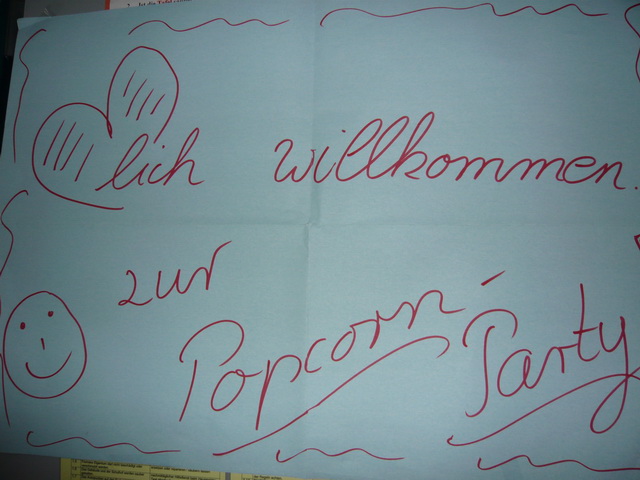 lich willkommen.
zur
Popcorn-Party